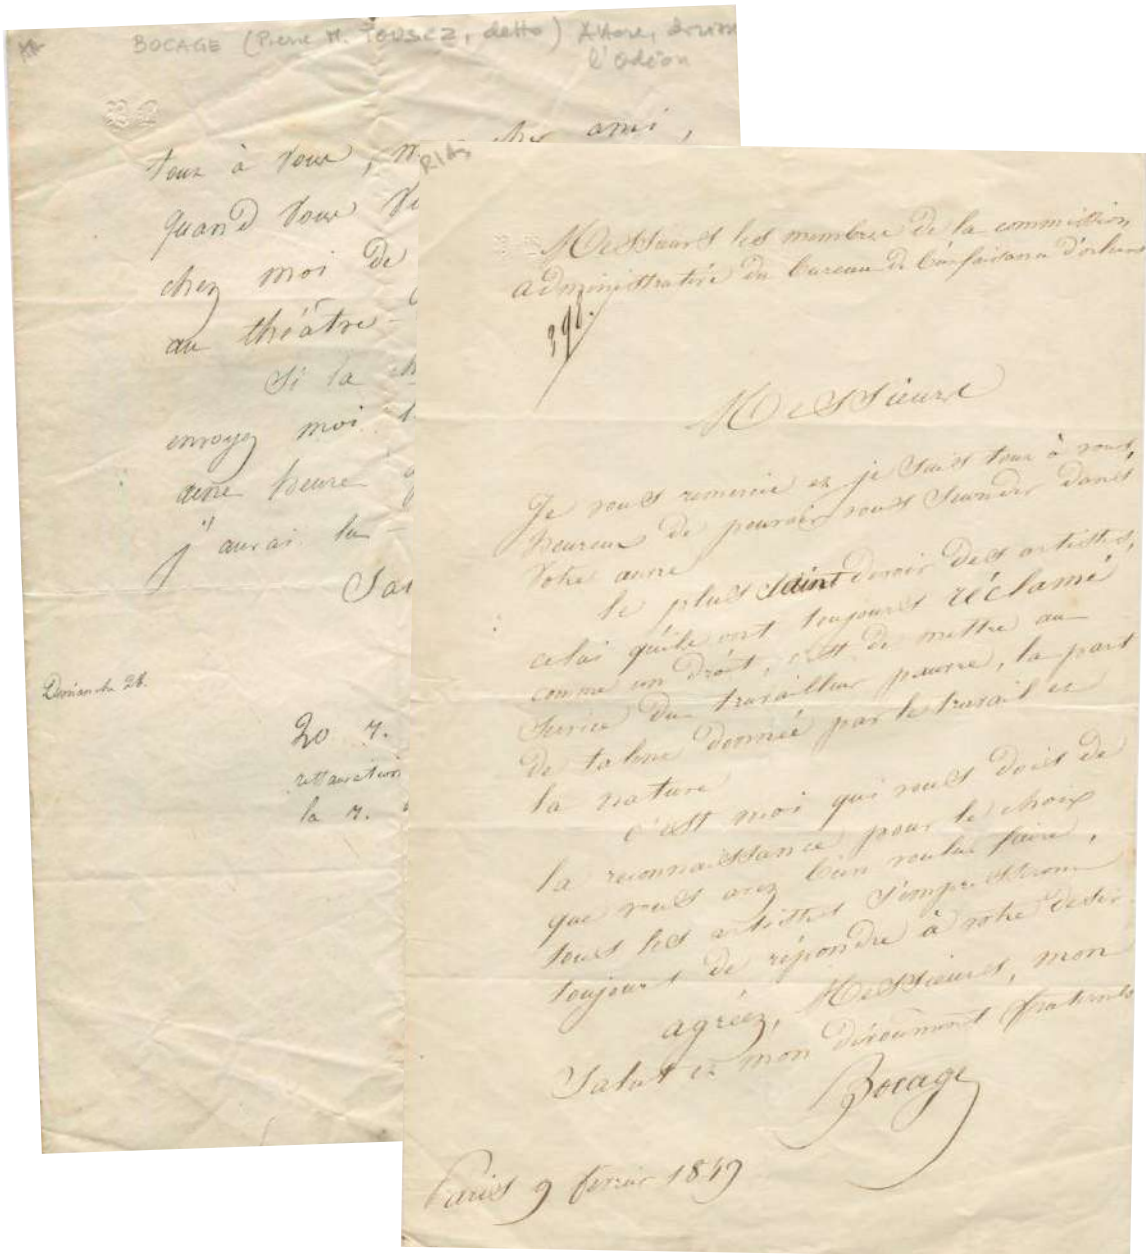 BOCAGE (Pierre M. TOUSEZ, detto) Attore,
l'Odéon
tout à vous, cher ami,
quand vous
chez moi de
au théâtre
Si la
envoyez moi
une heure
j'aurai la
Sa
Dimanche 28.
20 r.
la r.
RIA
Messieurs les membres de la commission
administrative du bureau de bienfaisance d'orléans
398.
Messieurs
Je vous remercie et je suis tout à vous,
heureux de pouvoir vous seconder dans
votre œuvre
le plus saint devoir des artistes,
celui qu'ils ont toujours réclamé
comme un droit, c'est de mettre au
service du travailleur pauvre, la part
de talent donnée par le travail et
la nature
c'est moi qui vous dois de
la reconnaissance pour le choix
que vous avez bien voulu faire,
tous les artistes s'empresseront
toujours de répondre à votre desir.
agréez, Messieurs, mon
Salut et mon dévoument fraternels
Bocage
Paris 9 fevrier 1849